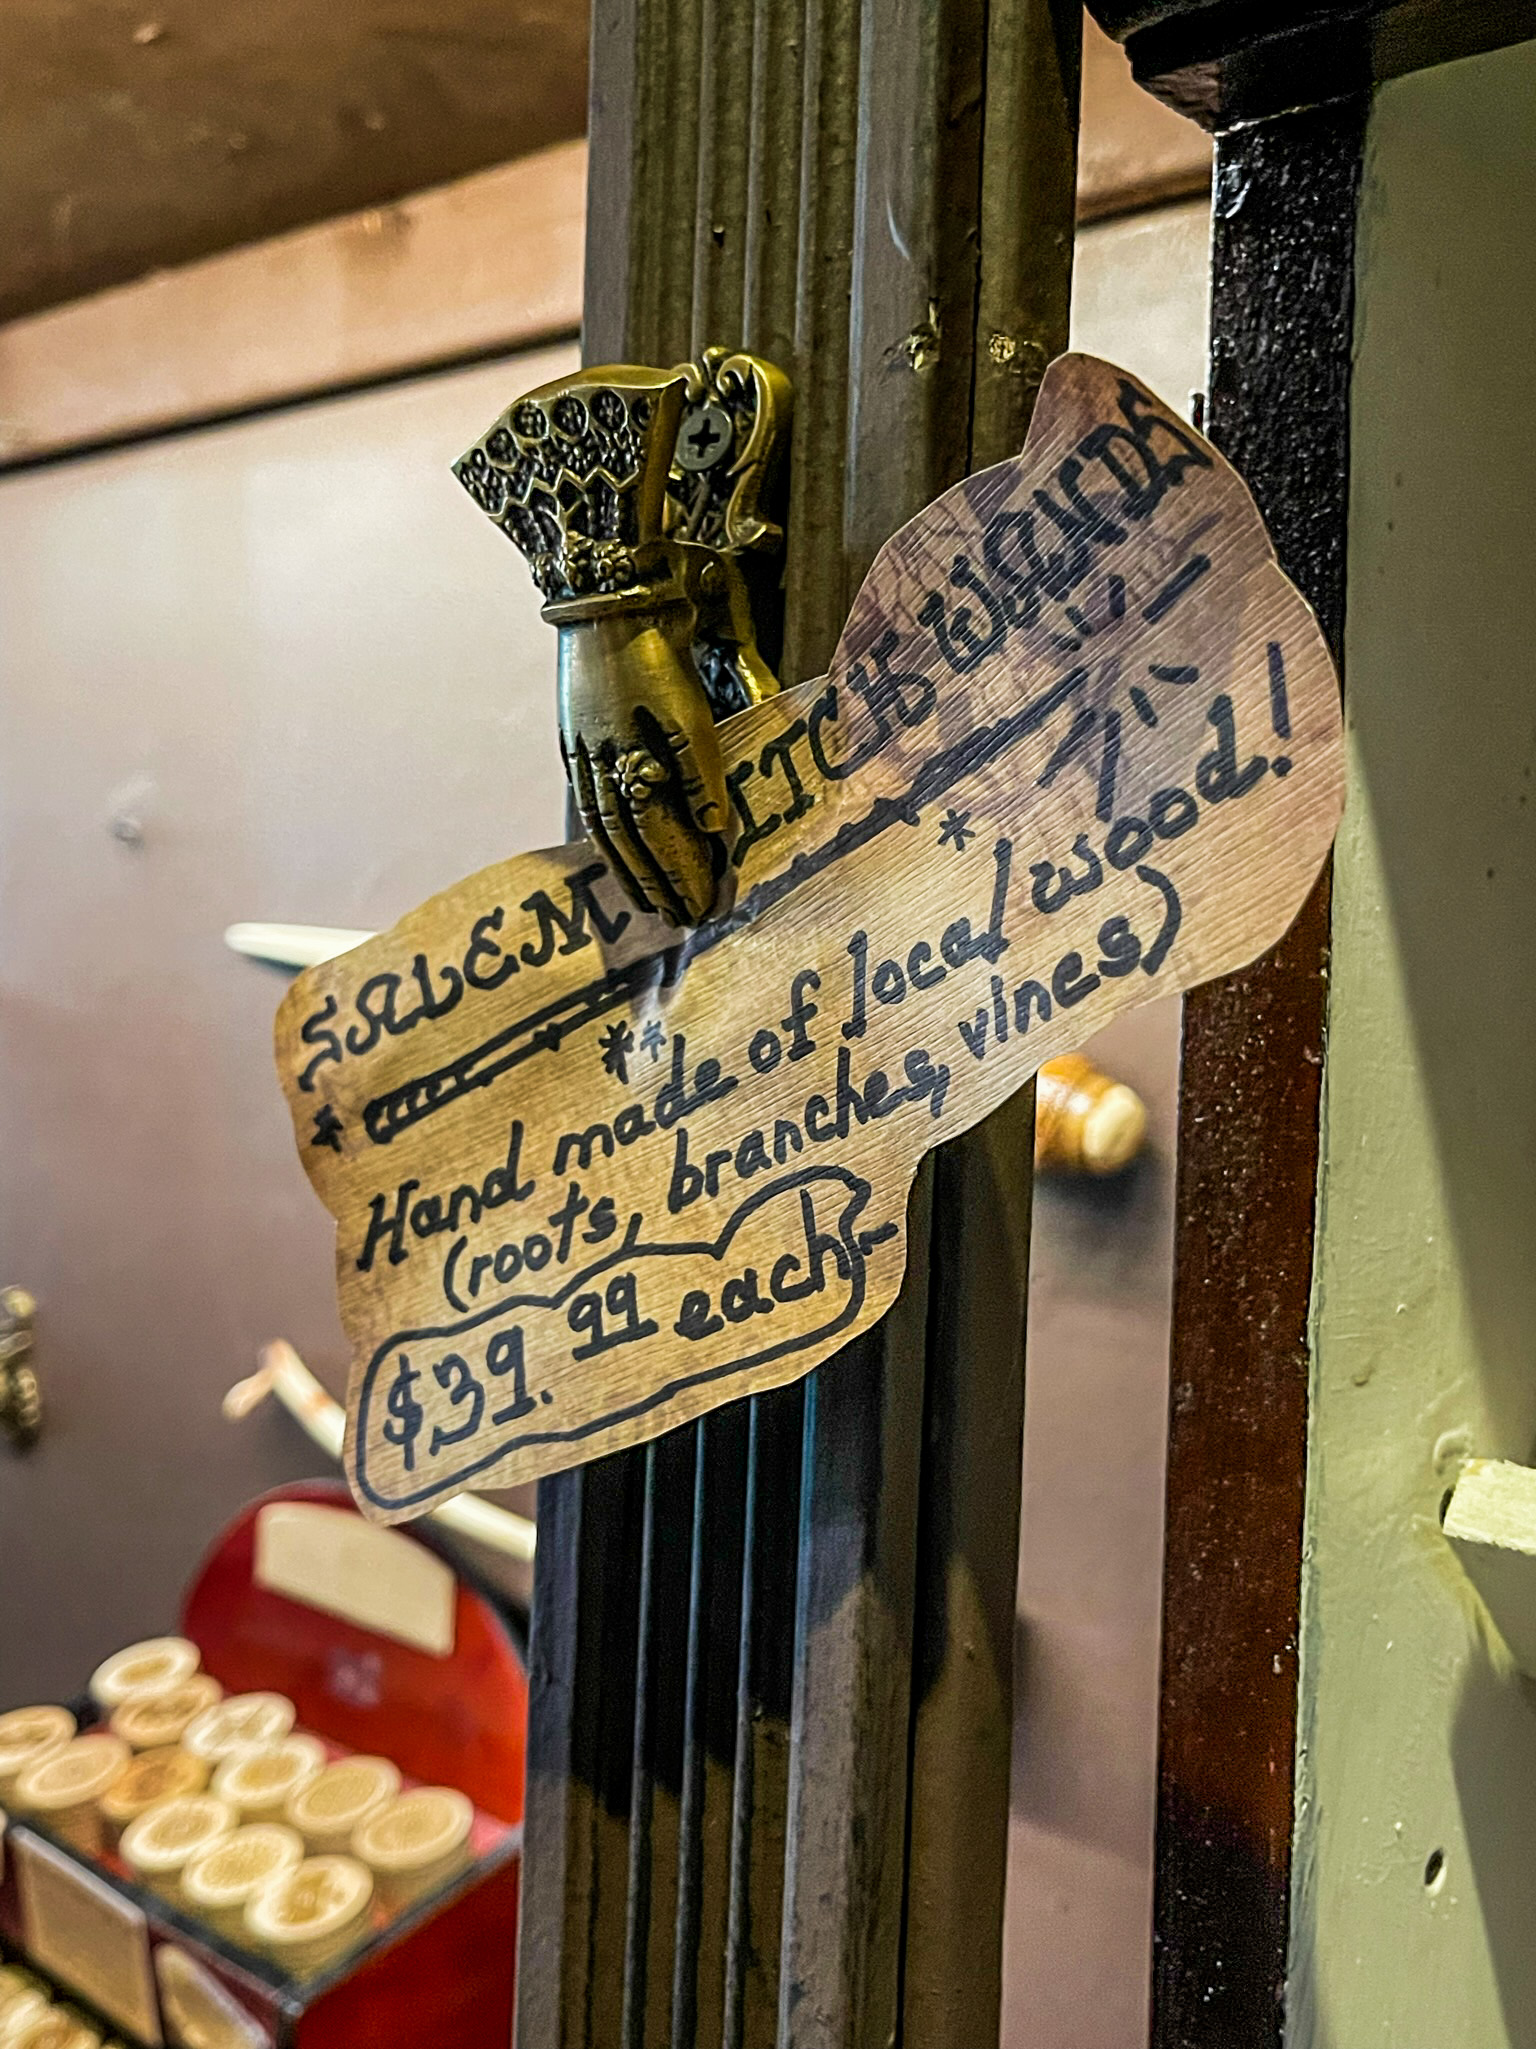 SALEM WITCH WANDS
Hand made of local wood!
(roots, branches, vines)
$39.99 each